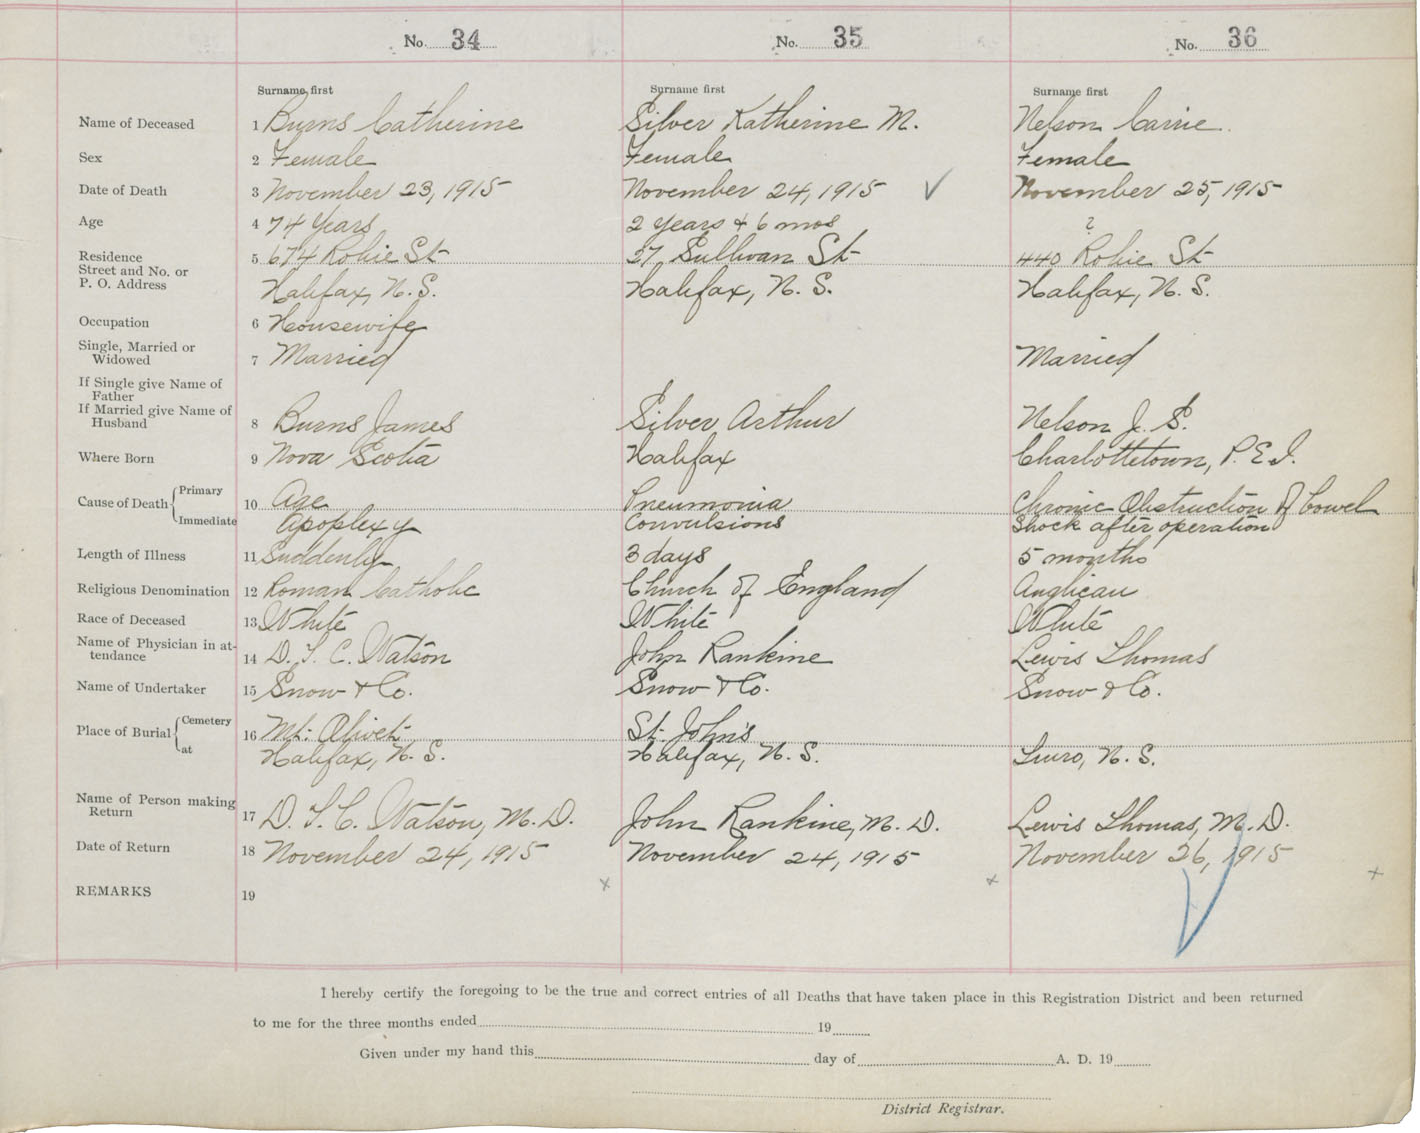 No. 34 No. 35 No. 36
Surname first Surname first Surname first
Name of Deceased 1 Burns Catherine Silver Katherine M. Nelson Carrie
Sex 2 Female Female Female
Date of Death 3 November 23, 1915 November 24, 1915 ✓ November 25, 1915
Age 4 74 Years 2 years & 6 mos ?
Residence 5 674 Robie St 27 Sullivan St 440 Robie St
Street and No. or
P. O. Address Halifax, N. S. Halifax, N. S. Halifax, N. S.
Occupation 6 Housewife
Single, Married or
Widowed 7 Married Married
If Single give Name of
Father
If Married give Name of
Husband 8 Burns James Silver Arthur Nelson J. S.
Where Born 9 Nova Scotia Halifax Charlottetown, P. E. I.
Cause of Death Primary 10 Age Pneumonia Chronic Obstruction of bowel
Immediate Apoplexy Convulsions Shock after operation
Length of Illness 11 Suddenly 3 days 5 months
Religious Denomination 12 Roman Catholic Church of England Anglican
Race of Deceased 13 White White White
Name of Physician in at-
tendance 14 D. T. C. Watson John Rankine Lewis Thomas
Name of Undertaker 15 Snow & Co. Snow & Co. Snow & Co.
Place of Burial Cemetery 16 Mt. Olivet St. John's
at Halifax, N. S. Halifax, N. S. Truro, N. S.
Name of Person making
Return 17 D. T. C. Watson, M. D. John Rankine, M. D. Lewis Thomas, M. D.
Date of Return 18 November 24, 1915 November 24, 1915 November 26, 1915
REMARKS 19 x x x
I hereby certify the foregoing to be the true and correct entries of all Deaths that have taken place in this Registration District and been returned
to me for the three months ended 19
Given under my hand this day of A. D. 19
District Registrar.